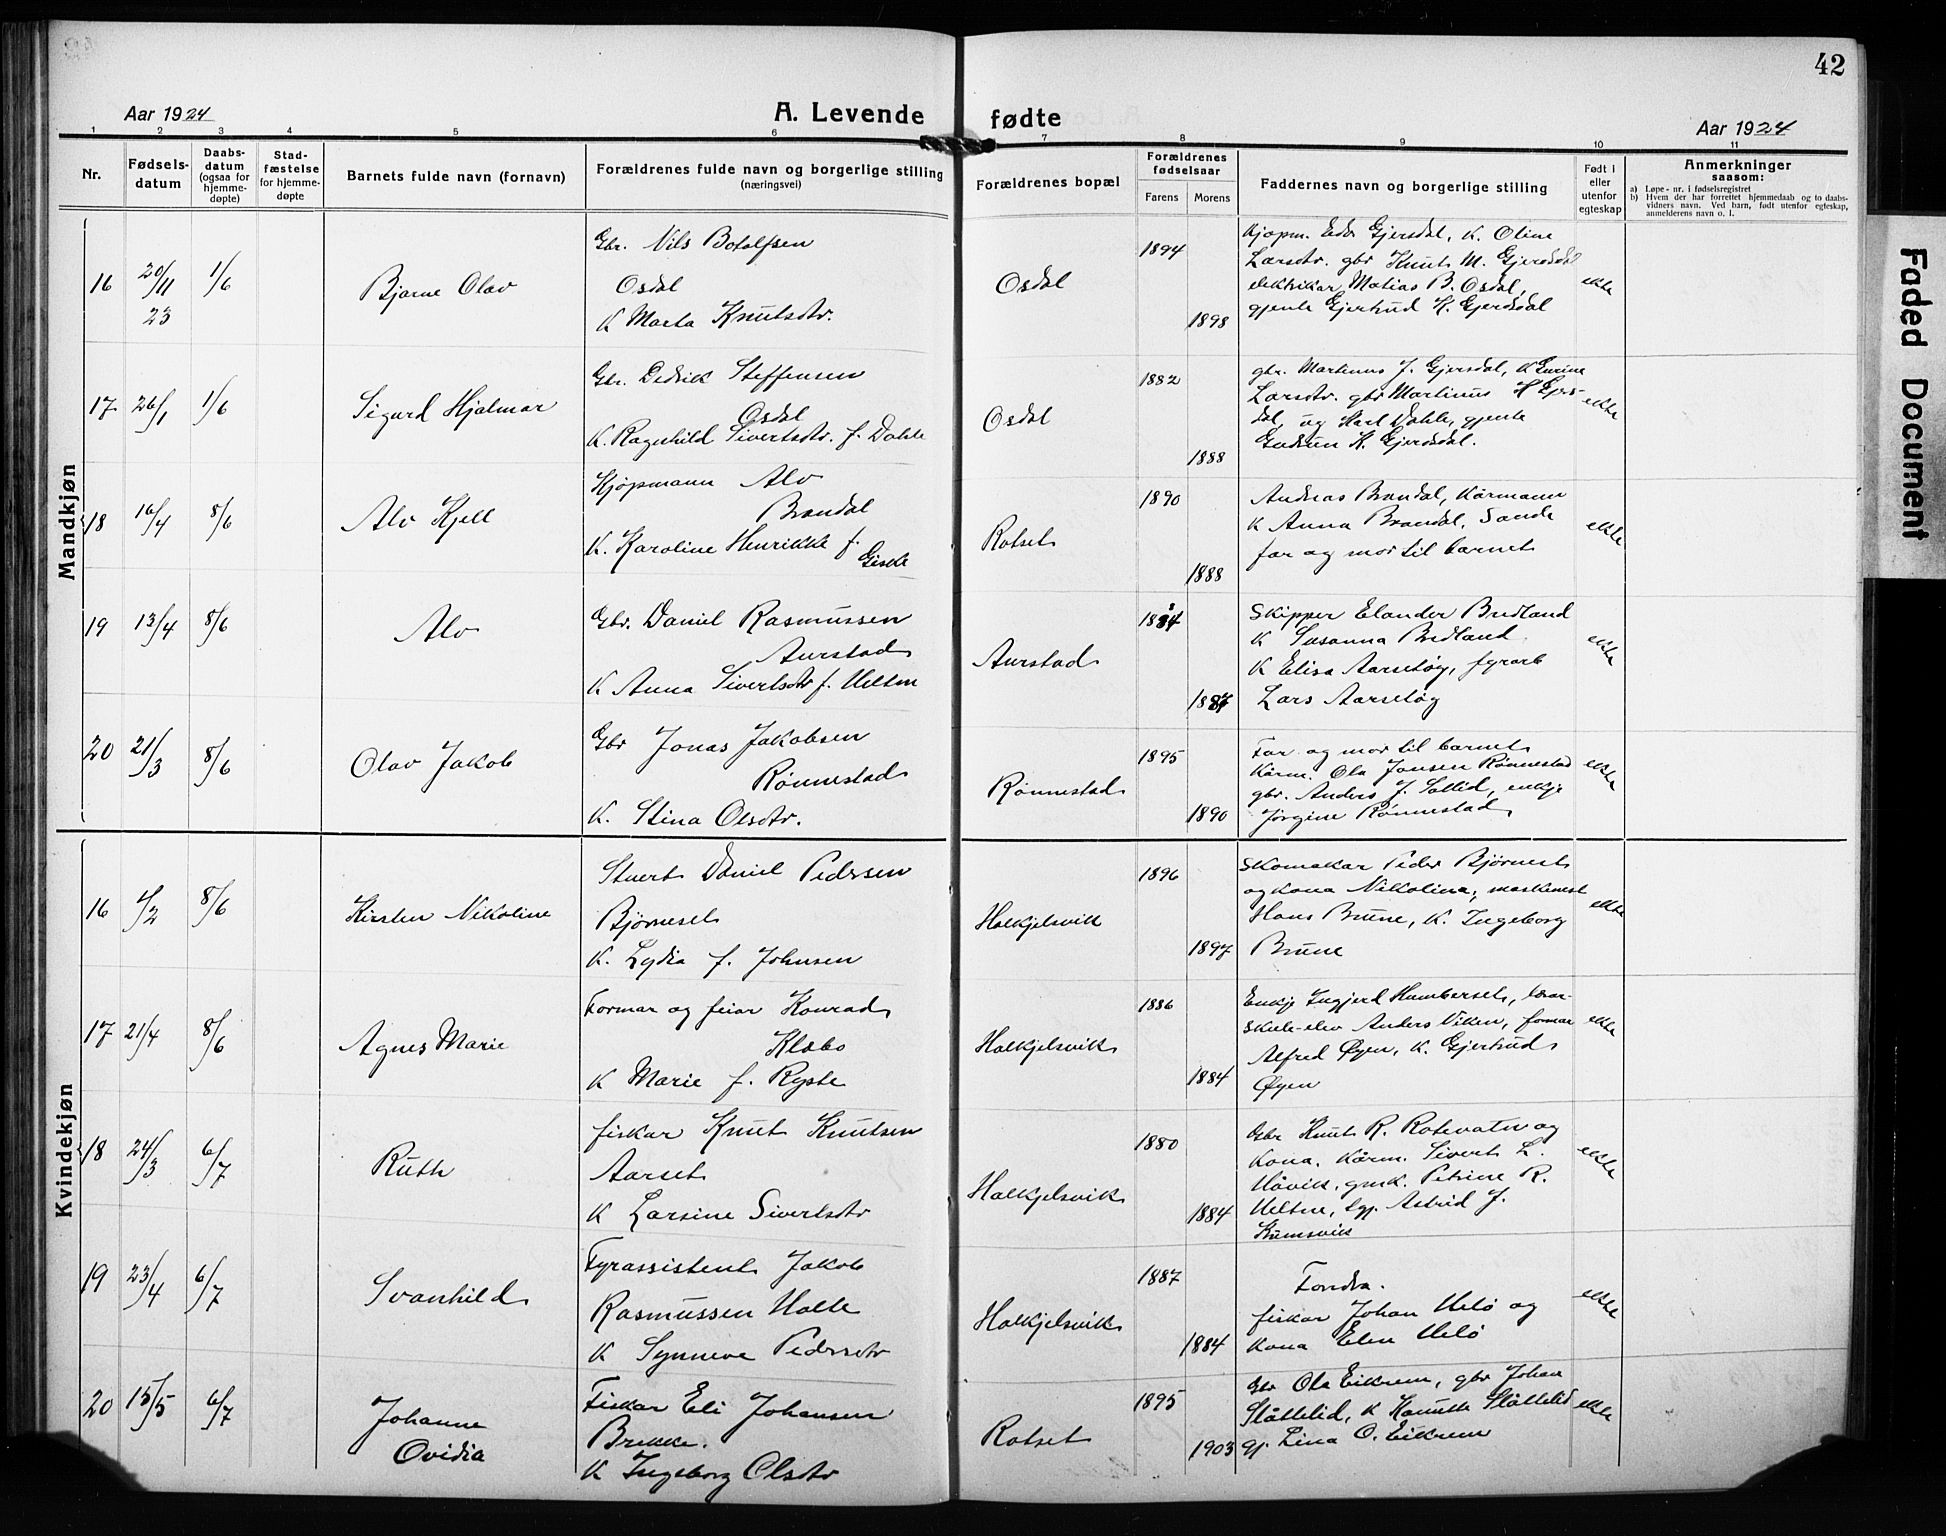 42
Aar 1924
A. Levende fødte
Aar 1924
1 2 3 4 5 6 7 8 9 10 11
Nr.
Fødsels-
datum
Daabs-
datum
(ogsaa for
hjemme-
døpte)
Stad-
fæstelse
for hjemme-
døpte
Barnets fulde navn (fornavn)
Forældrenes fulde navn og borgerlige stilling
(næringsvei)
Forældrenes bopæl
Forældrenes
fødselsaar
Farens Morens
Faddernes navn og borgerlige stilling
Født i
eller
utenfor
egteskap
Anmerkninger
saasom:
a) Løpe-nr. i fødselsregistret
b) Hvem der har forrettet hjemmedaab og to daabs-
vidners navn. Ved barn, født utenfor egteskap,
anmelderens navn o. l.
Faded Document
Mandkjøn
16 20/11 23 1/6 Bjarne Olav
Gbr. Nils Botolfsen
Osdal
K Marta Knutsdtr.
Osdal 1894 1898
Kjøpm. Edv Gjersdal, K. Oline
Larsdtr. gbr Knut M. Gjerdsdal
elektrikar Matias B. Osdal,
gjente Gjertrud K. Gjerdsdal
ekte
17 26/1 1/6 Sigurd Hjalmar
Gbr. Didrik Steffensen
Osdal
K. Ragnhild Sivertsdtr. f. Dahle
Osdal 1882 1888
gbr. Martinus J. Gjersdal, K
Larsdtr. gbr Martinus
dal, og Karl Dahle, gjente
Gudrun K. Gjerdsdal.
ekte
18 16/4 8/6 Alv Kjell
Kjøpmann Alv
Brandal
K. Karoline Henrikke f.
Giske
Rotset 1890 1888
Andreas Brandal, Kårmann
K Anna Brandal, Sande
far og mor til barnet
ekte
19 13/4 8/6 Alv
Gbr. Daniel Rasmussen
Aurstad
K Anna Sivertsdtr f. Velten
Aurstad 1884 1887
Skipper Elander Bredland
K Susanna Bredland
K Elisa Aarsetøg, fyrarb
Lars Aarsetøg
ekte
20 21/3 8/6 Olav Jakob
Gbr Jonas Jakobsen
Rønnestad
K. Stina Olsdtr.
Rønnestad 1895 1890
Far og mor til barnet
Kårm. Ola Jonsen Rønnestad
gbr. Anders J. Sollid, enkje
Jørgine Rønnestad
ekte
Kvindekjøn
16 /2 8/6 Kirsten Nikoline
Stuert Daniel Pedersen
Bjørneset
K. Lydia f. Johnsen
Halkjelsvik 1896 1897
Skomakar Peder Bjørneset
og kona Nikolina, maskinest
Hans Brune, K. Ingeborg
Brune
ekte
17 21/4 8/6 Agnes Marie
Formar og feiar Konrad
Klæbo
K Marie f. Ryste
Halkjelsvik 1886 1884
Enkje Ingjerd Humberset, lærar-
skule-elev Anders Viken, formar
Alfred Øyen, K. Gjertrud
Øyen
ekte
18 24/3 6/7 Ruth
fiskar Knut Knutsen
Aarset
K Larsine Sivertsdtr
Halkjelsvik 1880 1884
Gbr Knut R. Rotevatn og
Kona. Kårm. Sivert L.
Håvik, gmk. Petrine R.
Velten, tgj. Astrid J.
Kumsvik
ekte
19 23/4 6/7 Svanhild
Fyrassistent Jakob
Rasmussen Halle
K Synneve Pedersdtr
Halkjelsvik 1887 1884
Fordra.
fiskar Johan Helø og
kona Elen Helø
ekte
20 15/5 6/7 Johanne
Ovidia
Fiskar Eli Johansen
Brekke.
K Ingeborg Olsdtr
Rotset 1895 1903
Gbr Ola Eikrem, gbr Johan
Slåttelid, K Slåttelid
gj. Lina O. Eikrem
ekte